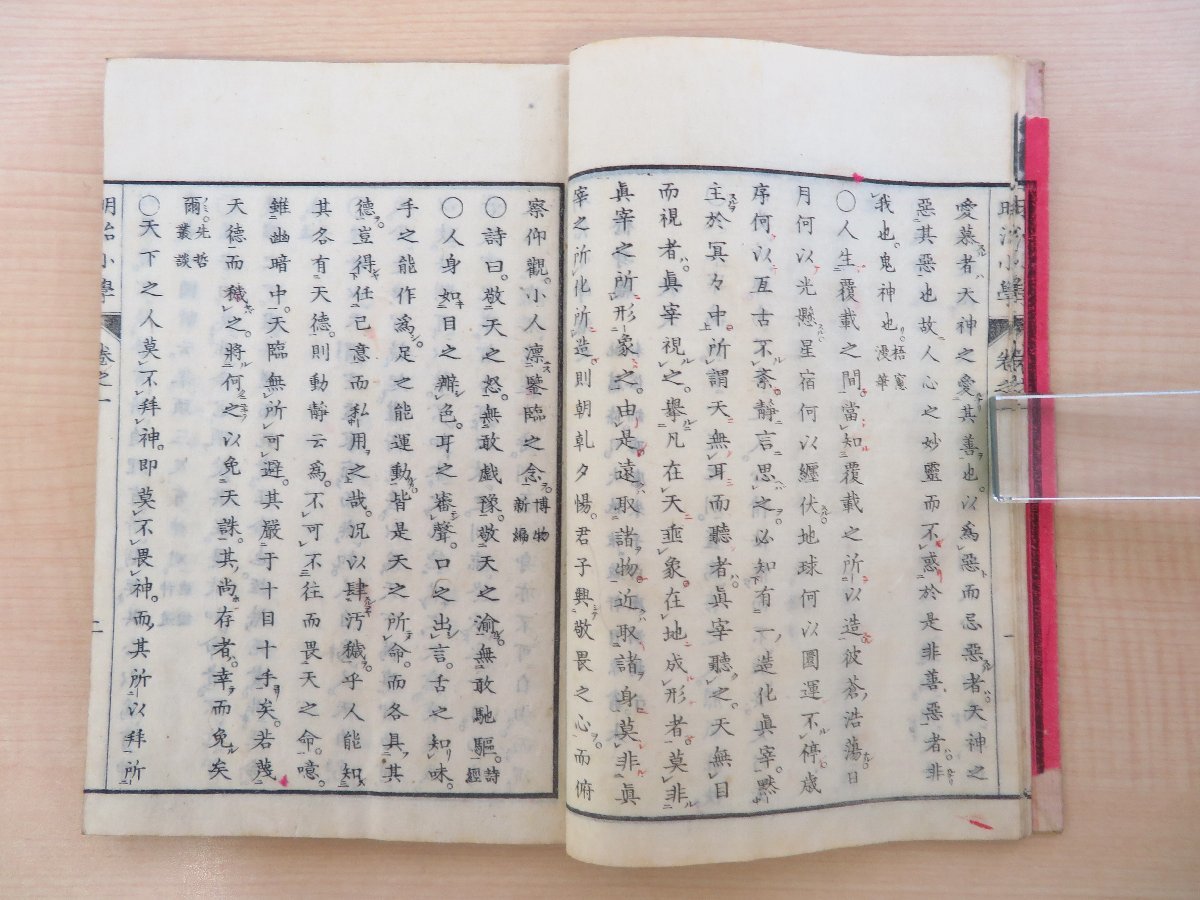 愛慕者天神之愛其善也。以爲惡而忌惡者天神之
惡其惡也故人心之妙靈而不惑於是非善惡者非
我也。鬼神也。梧窻漫筆
〇人生覆載之間當知覆載之所以造彼蒼浩蕩日
月何以光懸星宿何以纏伏地球何以圜運不停歲
序何以亙古不紊靜言思之必知有一造化眞宰默
主於冥々中所謂天無耳而聽者眞宰聽之天無目
而視者眞宰視之擧凡在天埀象在地成形者莫非
眞宰之所形象之。由是遠取諸物。近取諸身莫非眞
宰之所化所造則朝乹夕惕。君子興敬畏之心。而俯
察仰觀。小人凛鑒臨之念。博物新編
〇詩曰。敬天之怒。無敢戲豫。敬天之渝。無敢馳驅。詩經
〇人身如目之辨色。耳之審聲。口之出言。舌之知味。
手之能作爲。足之能運動。皆是天之所命。而各具其
德。豈得任己意而私用之哉。况以肆汚穢乎人能知
其名有天德。則動靜云爲。不可不往而畏天之命。噫。
雖幽暗中。天臨無所可避。其嚴于十目十手矣。若蔑
天德而穢之。將何之以免天誅。其尚存者。幸而免矣
爾。先哲叢談
〇天下之人莫不拜神。即莫不畏神。而其所以拜所
明治小學
卷之一
二
明治小學
卷之一
一